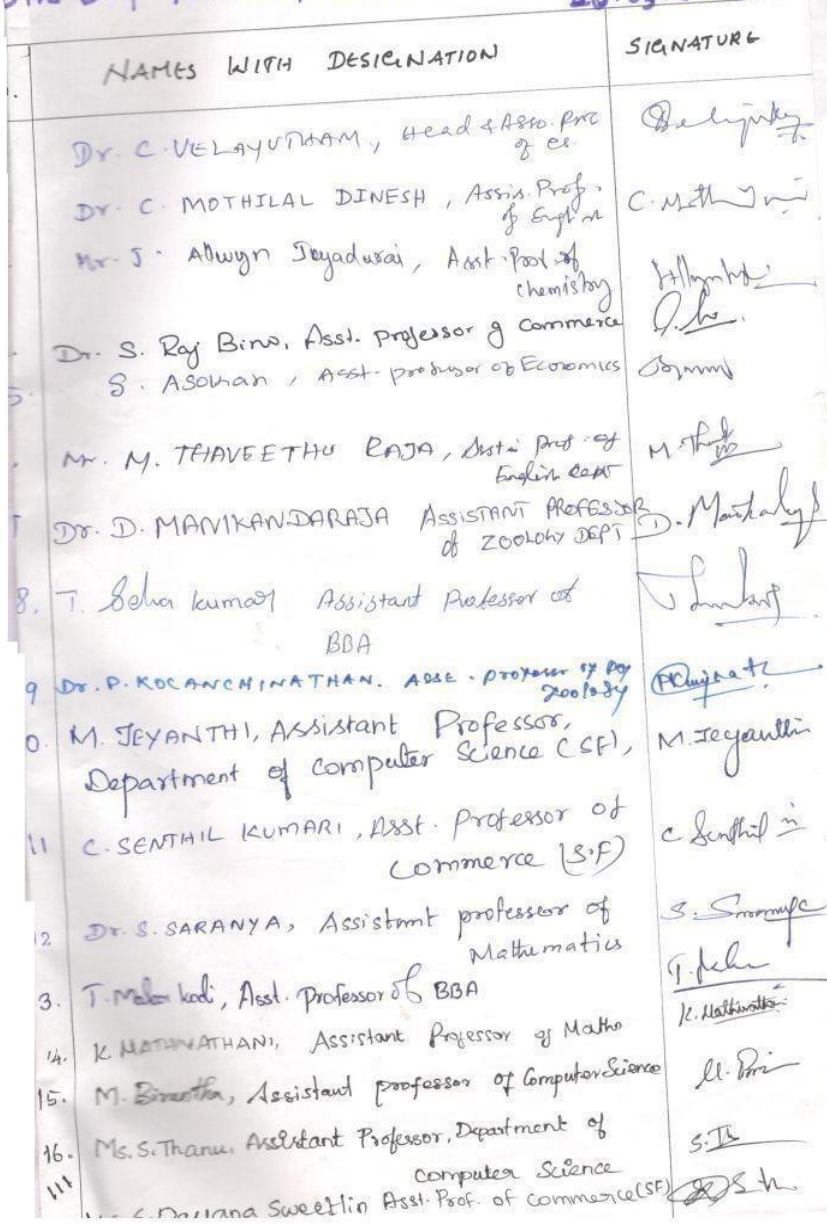 NAMES WITH DESIGNATION SIGNATURE
Dr. C. VELAYUTHAM, Head & Asso. Prof
of cs.
Dr. C. MOTHILAL DINESH, Assis. Prof.
of English
Mr. J. Allwyn Jeyadurai, Asst. Prof of
chemistry
Dr. S. Raj Bino, Asst. professor of commerce
S. ASOHAN, Asst. professor of Economics
Mr. M. THAVEETHU RAJA, prof. of
English
Dr. D. MANIKANDARAJA ASSISTANT PROFESSOR
of ZOOLOGY DEPT
8. T. Selva kumar Assistant Professor of
BBA
9 Dr. P. KOCANCHINATHAN. professor of
Zoology
0. M. JEYANTHI, Assistant Professor, M. Jeyanthi
Department of computer Science (SF),
11 C. SENTHIL KUMARI, Asst. Professor of C Senthil
commerce (S.F)
12 Dr. S. SARANYA, Assistant professor of
Mathematics
3. T. Malar kodi, Asst. Professor of BBA
14. K. MATHIVATHANI, Assistant Professor of Maths K. Mathivathani
15. M. Assistant professor of Computer Science
16. Ms. S. Thanu, Assistant Professor, Department of
computer Science
Dayana Sweetlin Asst. Prof. of commerce (SF)